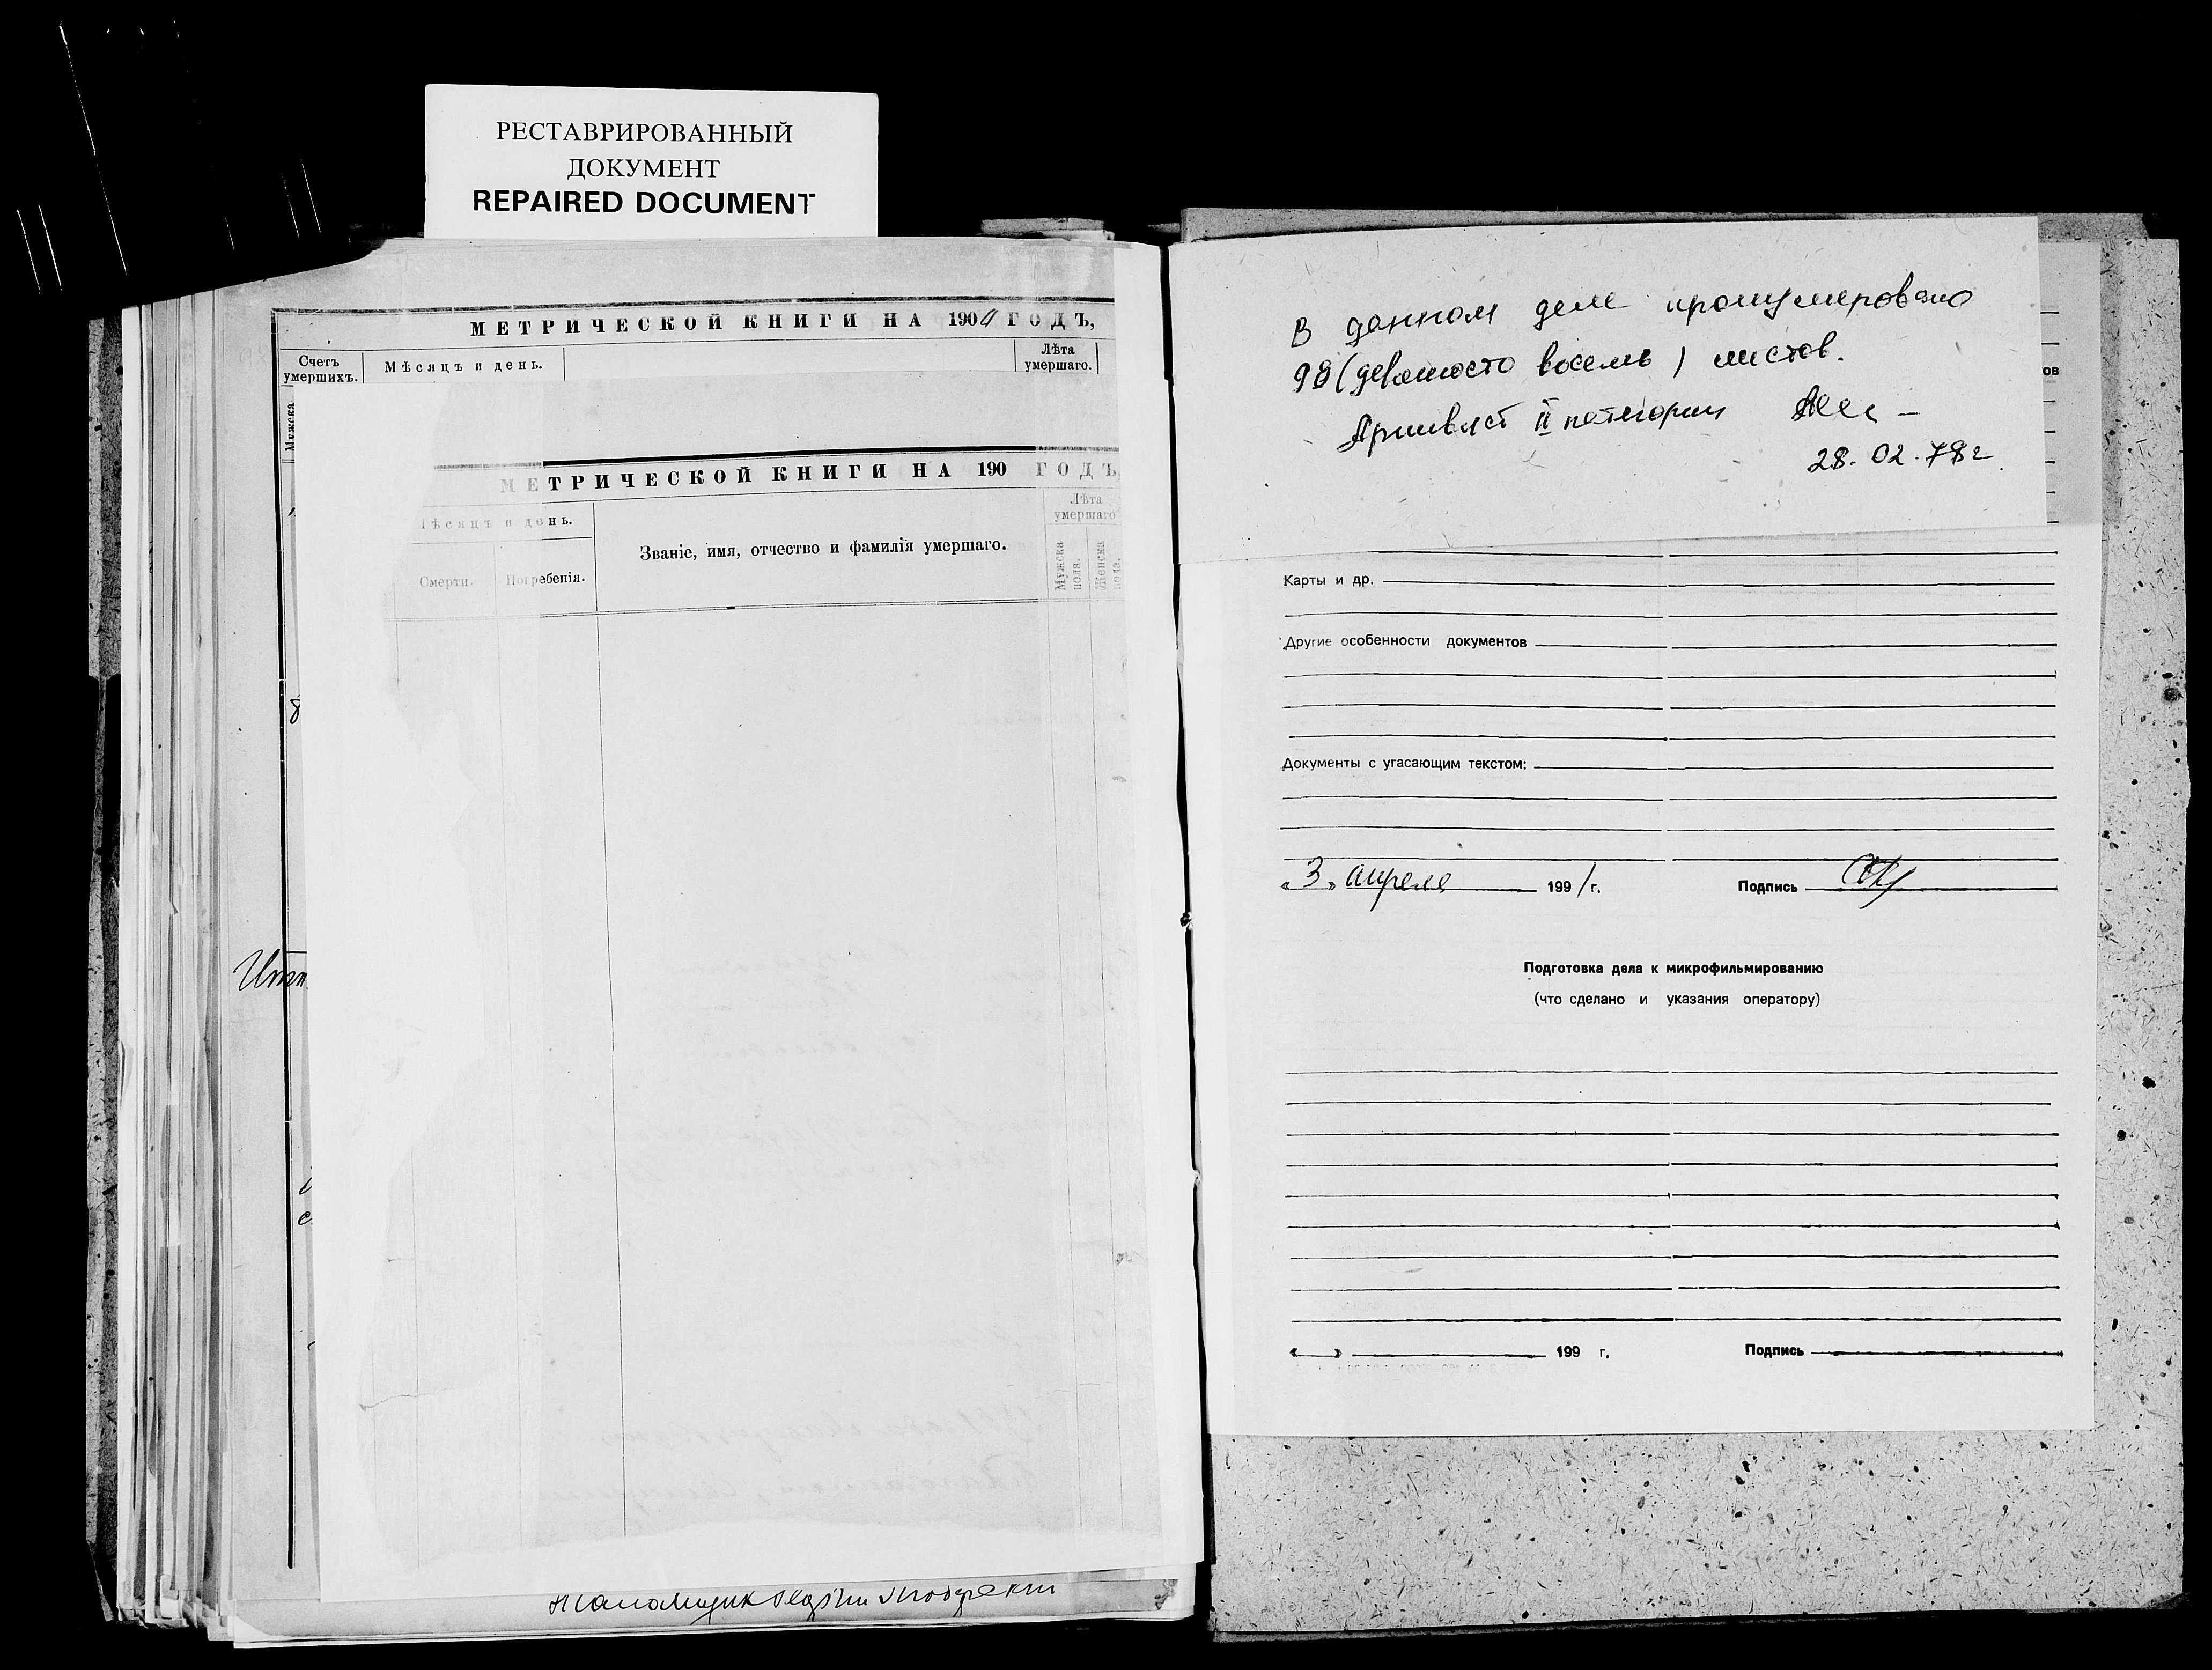 РЕСТАВРИРОВАННЫЙ
ДОКУМЕНТ
REPAIRED DOCUMENT
МЕТРИЧЕСКОЙ КНИГИ НА 1904 ГОДЪ,
Счетъ умершихъ.
Мѣсяцъ и день.
Лѣта умершаго.
Мужеска
МЕТРИЧЕСКОЙ КНИГИ НА 190 ГОДЪ,
Мѣсяцъ и день.
Смерти.
Погребенія.
Званіе, имя, отчество и фамилія умершаго.
Лѣта умершаго
Мужеска пола.
Женска пола.
В данном деле пронумеровано
98 (девяносто восемь) листов.
Архивист II категории
28.02.78г
ов
Карты и др.
Другие особенности документов
Документы с угасающим текстом:
«3» апреля 1991 г. Подпись
Подготовка дела к микрофильмированию
(что сделано и указания оператору)
« » 199 г. Подпись